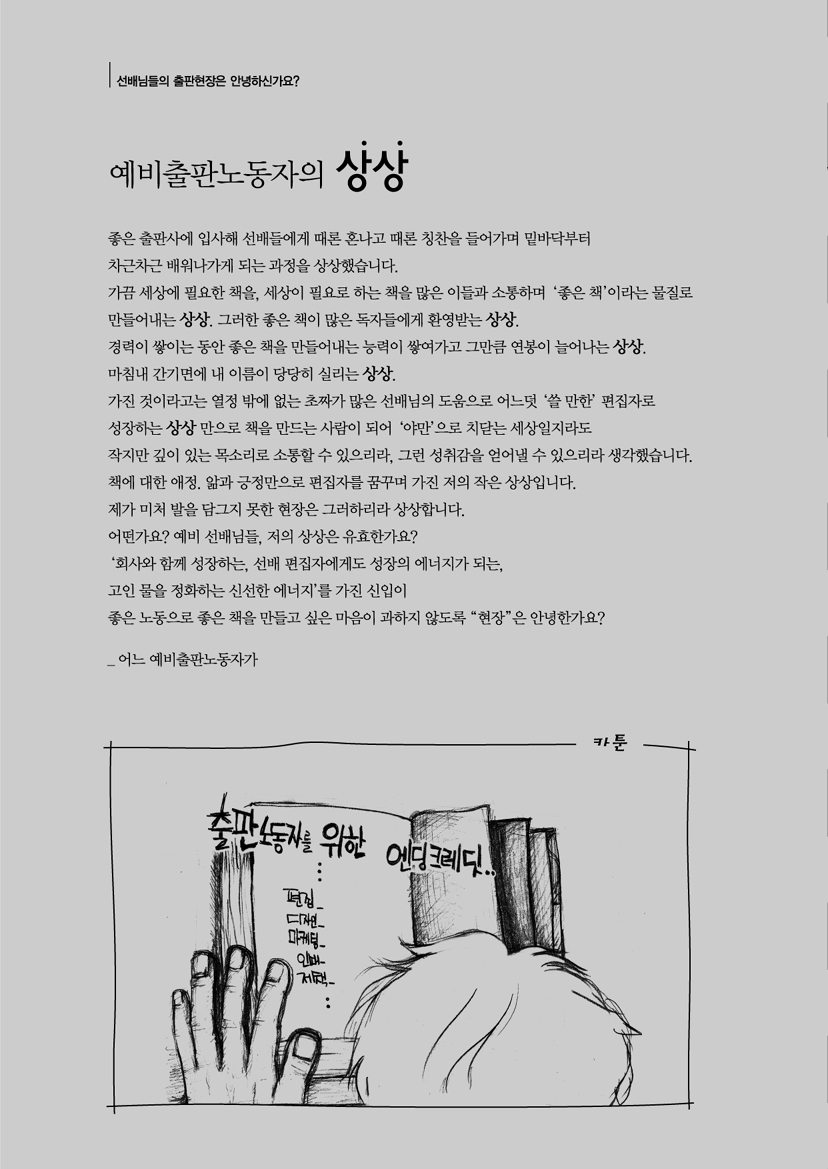 선배님들의 출판현장은 안녕하신가요?
예비출판노동자의 상상
좋은 출판사에 입사해 선배들에게 때론 혼나고 때론 칭찬을 들어가며 밑바닥부터
차근차근 배워나가게 되는 과정을 상상했습니다.
가끔 세상에 필요한 책을, 세상이 필요로 하는 책을 많은 이들과 소통하며 ‘좋은 책’이라는 물질로
만들어내는 상상. 그러한 좋은 책이 많은 독자들에게 환영받는 상상.
경력이 쌓이는 동안 좋은 책을 만들어내는 능력이 쌓여가고 그만큼 연봉이 늘어나는 상상.
마침내 간기면에 내 이름이 당당히 실리는 상상.
가진 것이라고는 열정 밖에 없는 초짜가 많은 선배님의 도움으로 어느덧 ‘쓸 만한’ 편집자로
성장하는 상상 만으로 책을 만드는 사람이 되어 ‘야만’으로 치닫는 세상일지라도
작지만 깊이 있는 목소리로 소통할 수 있으리라, 그런 성취감을 얻어낼 수 있으리라 생각했습니다.
책에 대한 애정. 앎과 긍정만으로 편집자를 꿈꾸며 가진 저의 작은 상상입니다.
제가 미처 발을 담그지 못한 현장은 그러하리라 상상합니다.
어떤가요? 예비 선배님들, 저의 상상은 유효한가요?
‘회사와 함께 성장하는, 선배 편집자에게도 성장의 에너지가 되는,
고인 물을 정화하는 신선한 에너지’를 가진 신입이
좋은 노동으로 좋은 책을 만들고 싶은 마음이 과하지 않도록 “현장”은 안녕한가요?
_ 어느 예비출판노동자가
카툰
출판노동자를 위한 엔딩크레딧..
편집_
디자인_
마케팅_
인쇄_
제작_